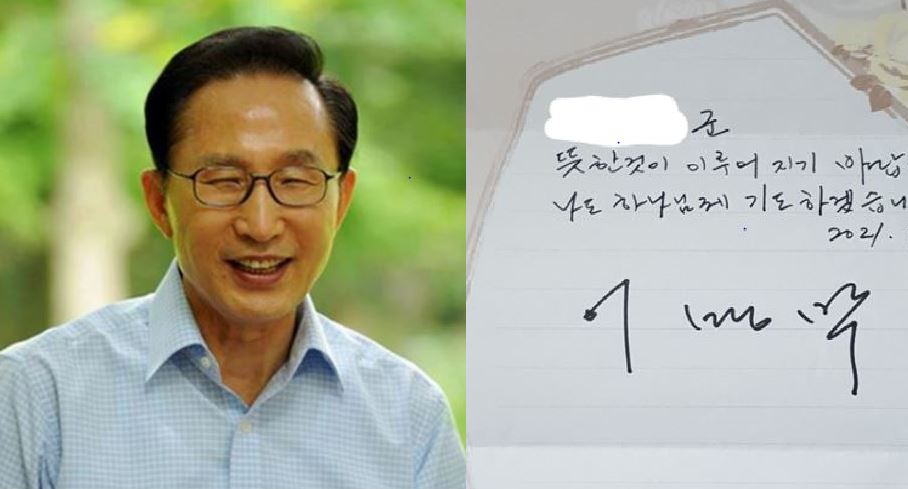 군
뜻한것이 이루어 지기 바랍
나도 하나님께 기도하겠습니
2021.